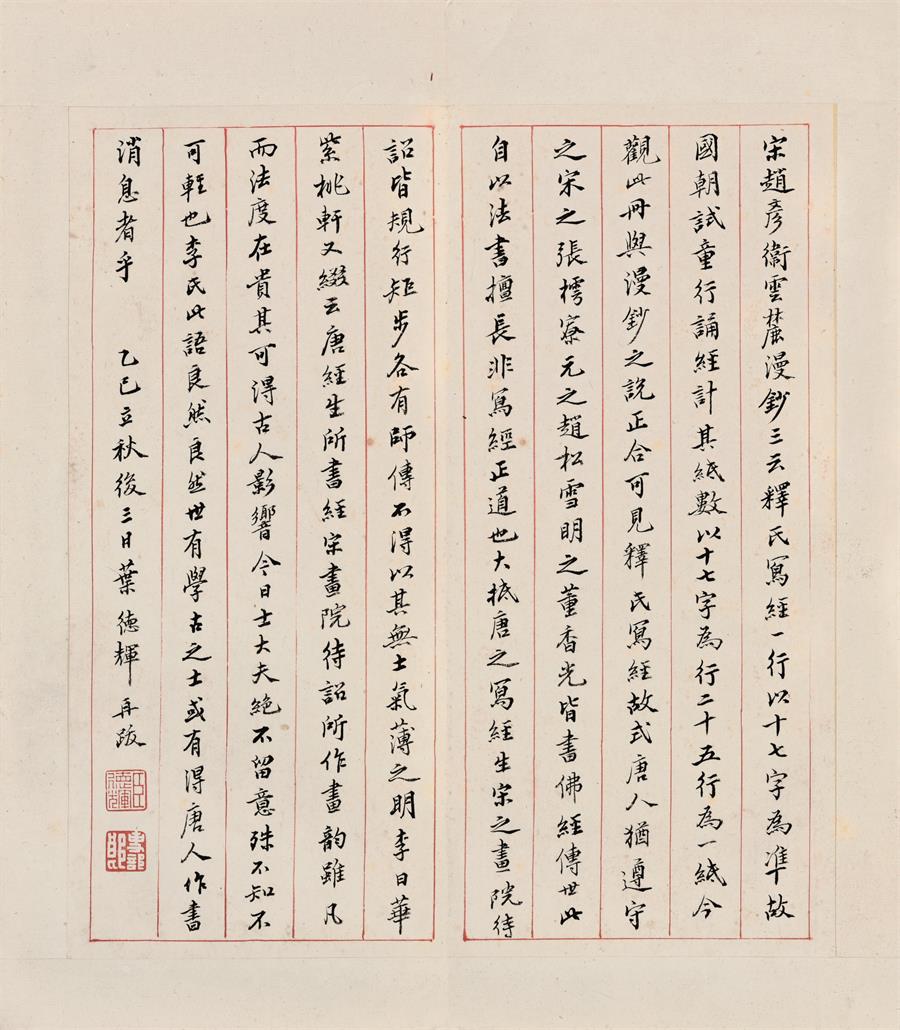 宋趙彥衛雲麓漫鈔三云釋氏寫經一行以十七字為準故
國朝試童行誦經計其紙數以十七字為行二十五行為一紙今
觀此冊與漫鈔之說正合可見釋氏寫經故式唐人猶遵守
之宋之張樗寮元之趙松雪明之董香光皆書佛經傳世此
自以法書擅長非寫經正道也大抵唐之寫經生宋之畫院待
詔皆規行矩步各有師傳不得以其無士氣薄之明李日華
紫桃軒又綴云唐經生所書經宋畫院待詔所作畫韵雖凡
而法度在貴其可得古人影響今日士大夫絕不留意殊不知不
可輕也李氏此語良然良然世有學古之士或有得唐人作書
消息者乎 乙巳立秋後三日葉德輝再跋
吏部郎